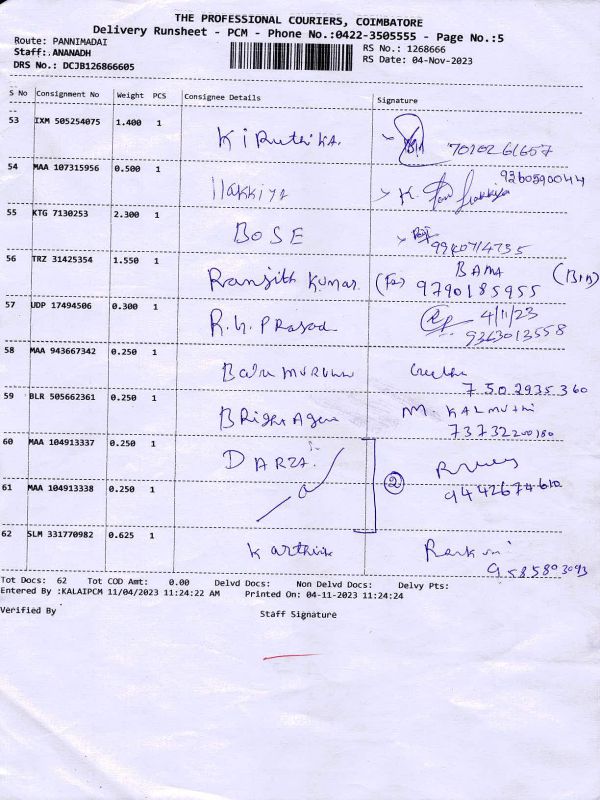 THE PROFESSIONAL COURIERS, COIMBATORE
Delivery Runsheet - PCM - Phone No.:0422-3505555 - Page No.:5
Route: PANNIMADAI
RS No.: 1268666
Staff: ANANADH
RS Date: 04-Nov-2023
DRS No.: DCJB126866605
S No Consignment No Weight PCS Consignee Details Signature
53 IXM 505254075 1.400 1 KiRuthiKA. 7010261657
54 MAA 107315956 0.500 1 Ilakkiya K. 9360590044
55 KTG 7130253 2.300 1 BOSE 9940714735
56 TRZ 31425354 1.550 1 Ranjith Kumar (Fa) BAMA (BIB)
9790185955
57 UDP 17494506 0.300 1 R.G. PRasad 4/11/23
9363013558
58 MAA 943667342 0.250 1 Balu MURUGAN Geetha
7502935360
59 BLR 505662361 0.250 1 BRight Agen M. KALMUTHI
73732200180
60 MAA 104913337 0.250 1 DARZA.
61 MAA 104913338 0.250 1 2 9442674610
62 SLM 331770982 0.625 1 Karthik
9585803093
Tot Docs: 62 Tot COD Amt: 0.00 Delvd Docs: Non Delvd Docs: Delvy Pts:
Entered By :KALAIPCM 11/04/2023 11:24:22 AM Printed On: 04-11-2023 11:24:24
Verified By Staff Signature